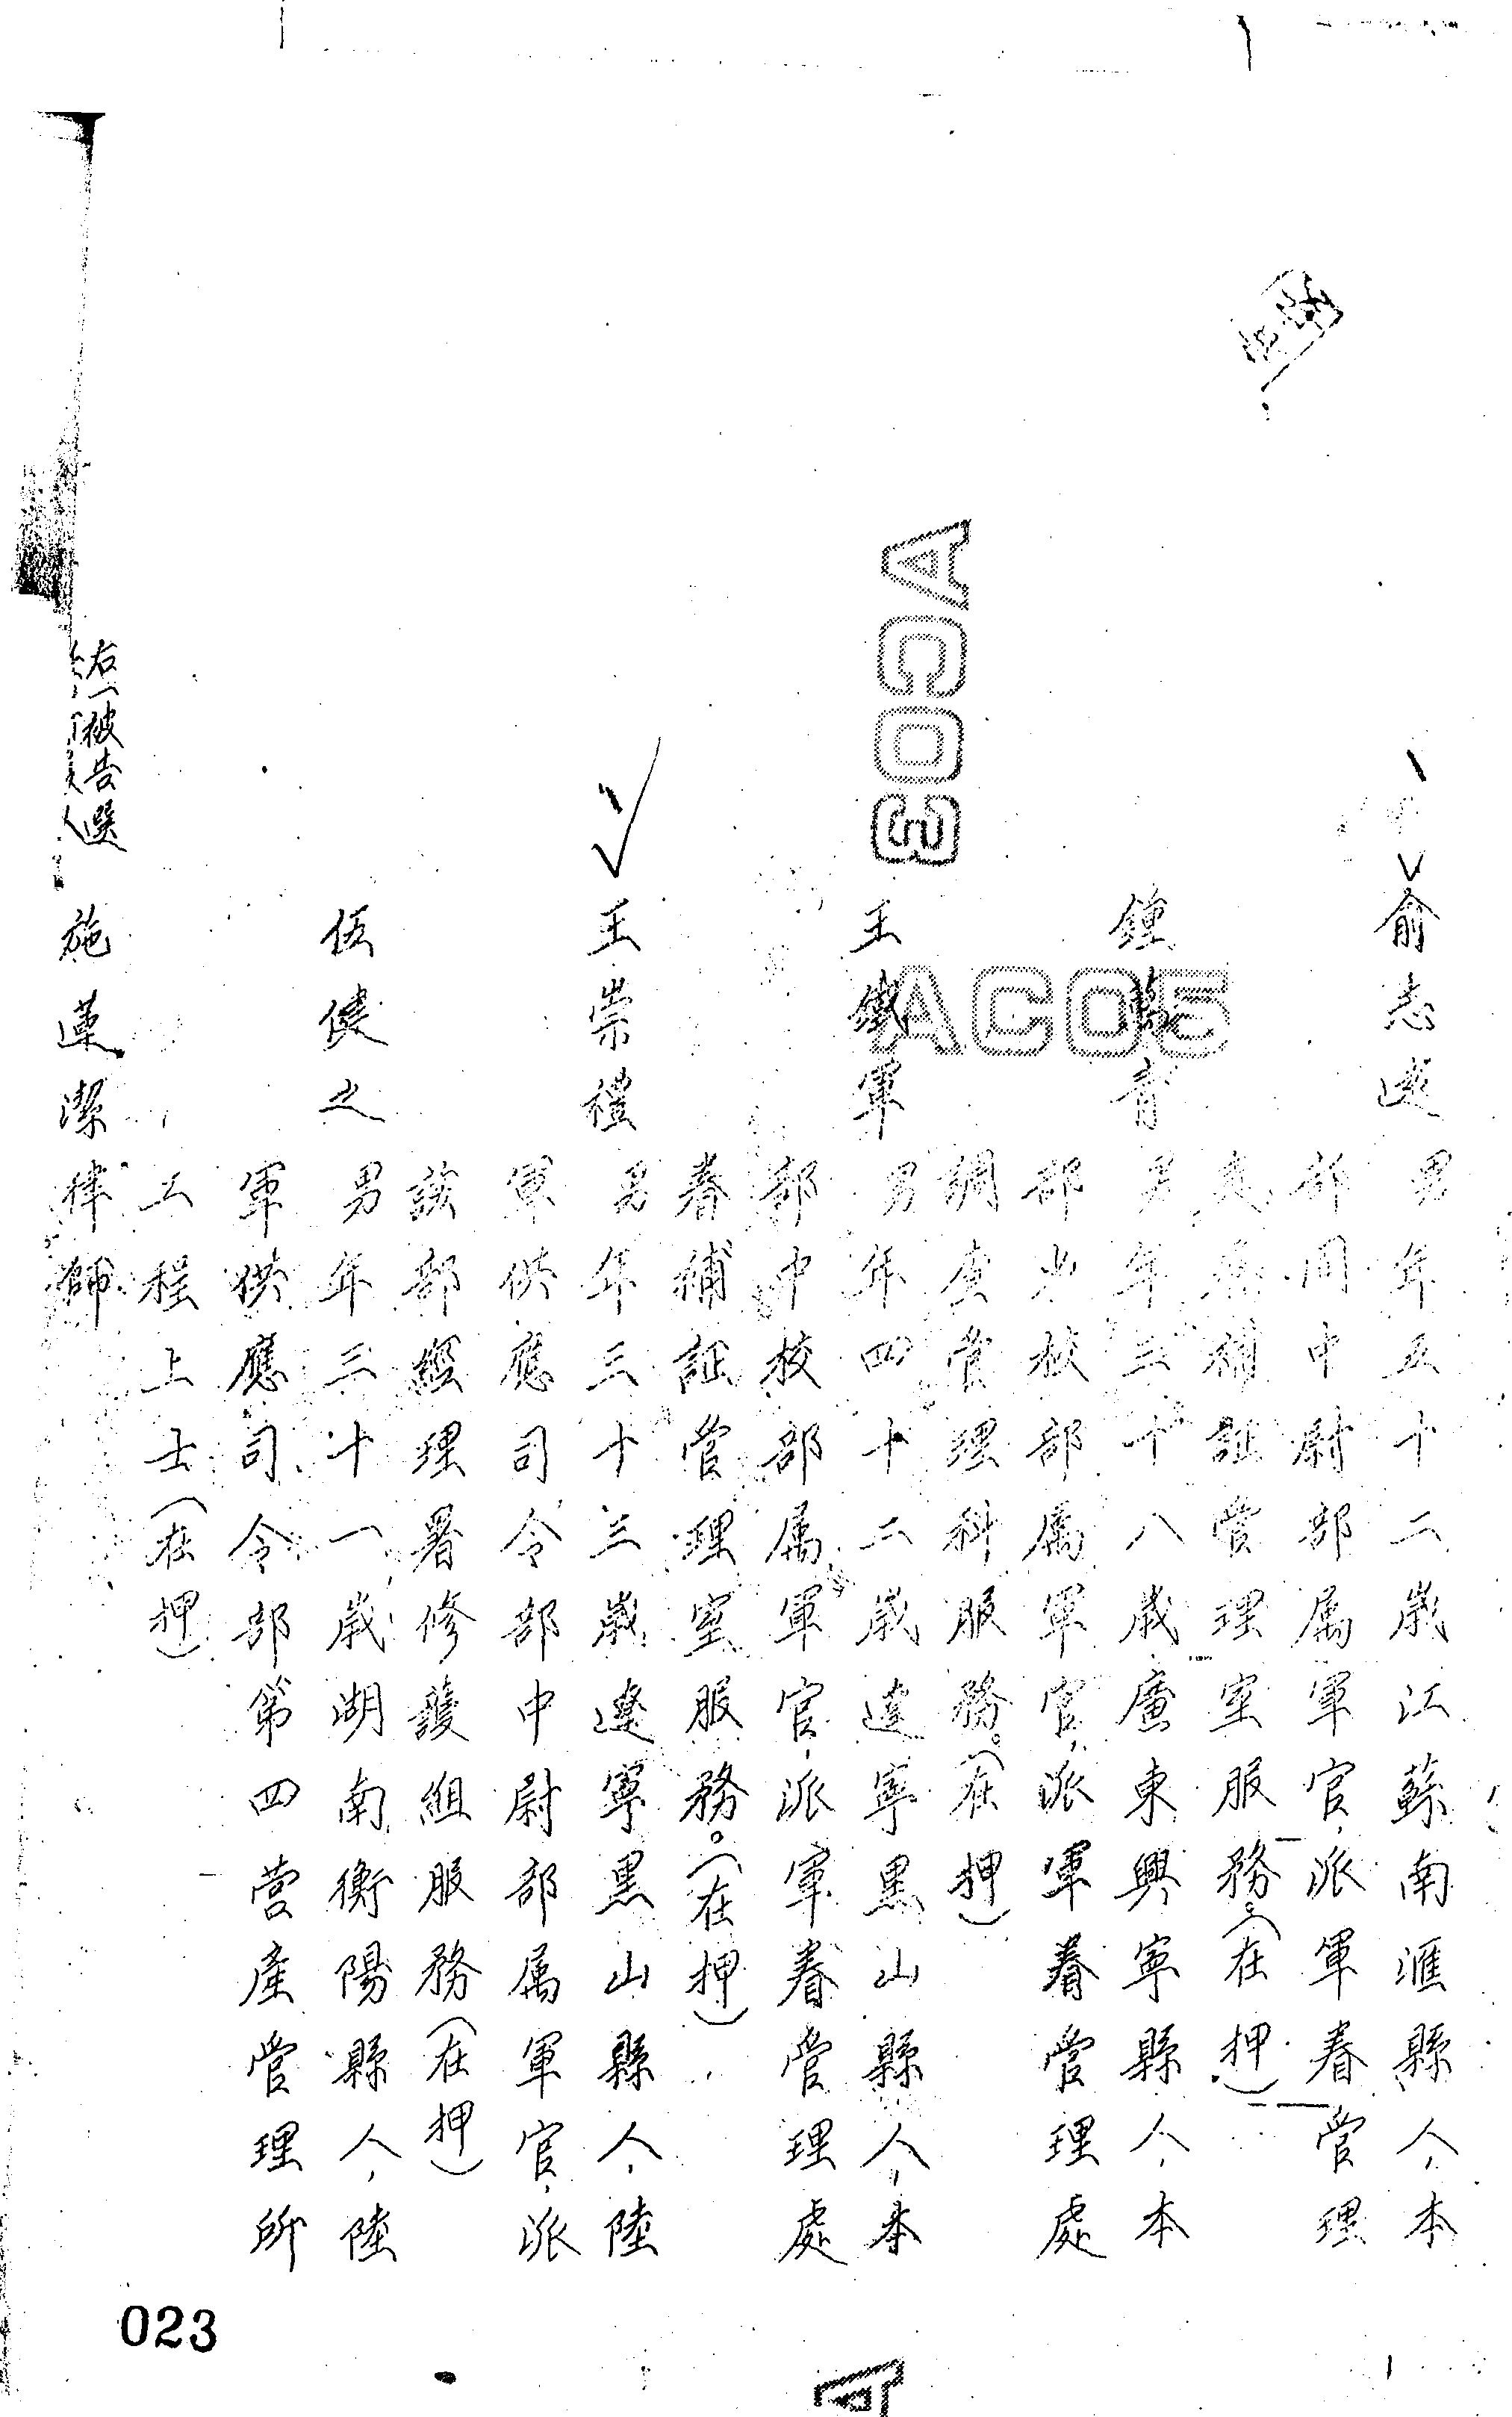 俞志遠 男年五十二歲江蘇南滙縣人，本
部同中尉部属軍官，派軍眷管理
處眷補証管理室服務。（在押）
鍾 青 男年三十八歲廣東興寧縣人，本
部少校部属軍官，派軍眷管理處
調查管理科服務。（在押）
王鐵軍 男年四十二歲遼寧黑山縣人，本
部中校部属軍官，派軍眷管理處
眷補証管理室服務。（在押）
王崇禮 男年三十三歲遼寧黑山縣人，陸
軍供應司令部中尉部属軍官，派
該部經理署修護組服務（在押）
伍健之 男年三十一歲湖南衡陽縣人，陸
軍供應司令部第四营產管理所
工程上士（在押）
右一被告選
人 施蓮潔律師
023
AC03
AC05
A